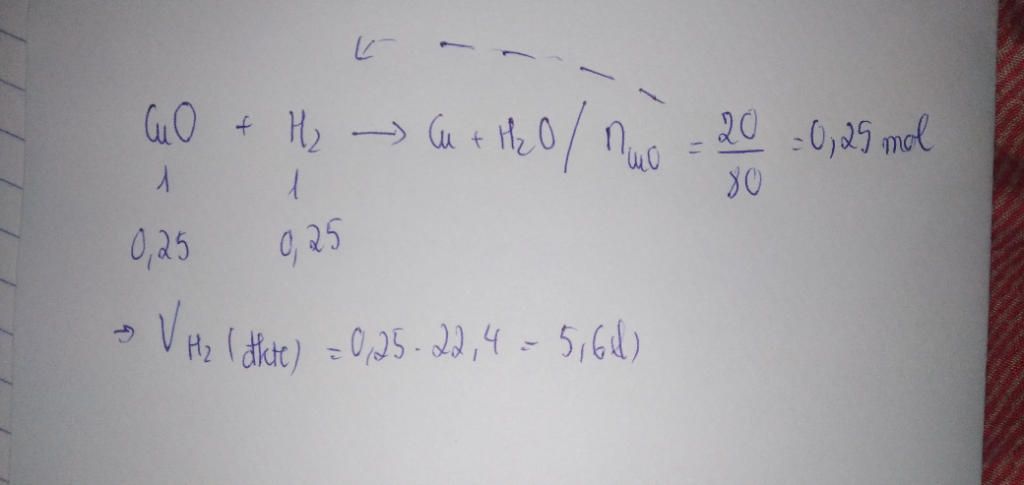 CuO + H₂ → Cu + H₂O / nCuO = 20/80 = 0,25 mol
1 1
0,25 0,25
→ VH₂ (đktc) = 0,25 . 22,4 = 5,6 (l)